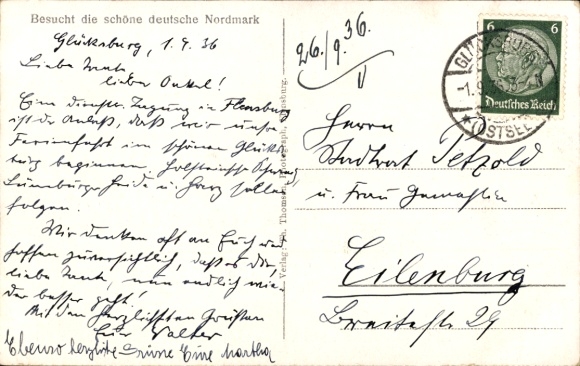 Besucht die schöne deutsche Nordmark
Glücksburg, 1.9.36
Liebe Tante,
lieber Onkel!
Eine dienstl. Tagung in Flensburg
ist der Anlaß, daß wir unsre
Ferienfahrt im schönen Glücks-
burg beginnen. Holsteinische Schweiz,
Lüneburger Heide u. Harz sollen
folgen.
Wir denken oft an Euch und
hoffen zuversichtlich, daß es Dir,
liebe Tante, nun endlich wie-
der besser geht!
Mit den herzlichsten Grüßen
Euer Walter
Ebenso herzliche Grüsse Eure Martha
Verlag: Th. Thomsen, Photograph, Flensburg.
26./9. 36.
6 6
Deutsches Reich
GLÜCKSBURG
-1.9.
(OSTSEE)
Herrn
Stadtrat Petzold
u. Frau Gemahlin
Eilenburg
Breitestr. 29